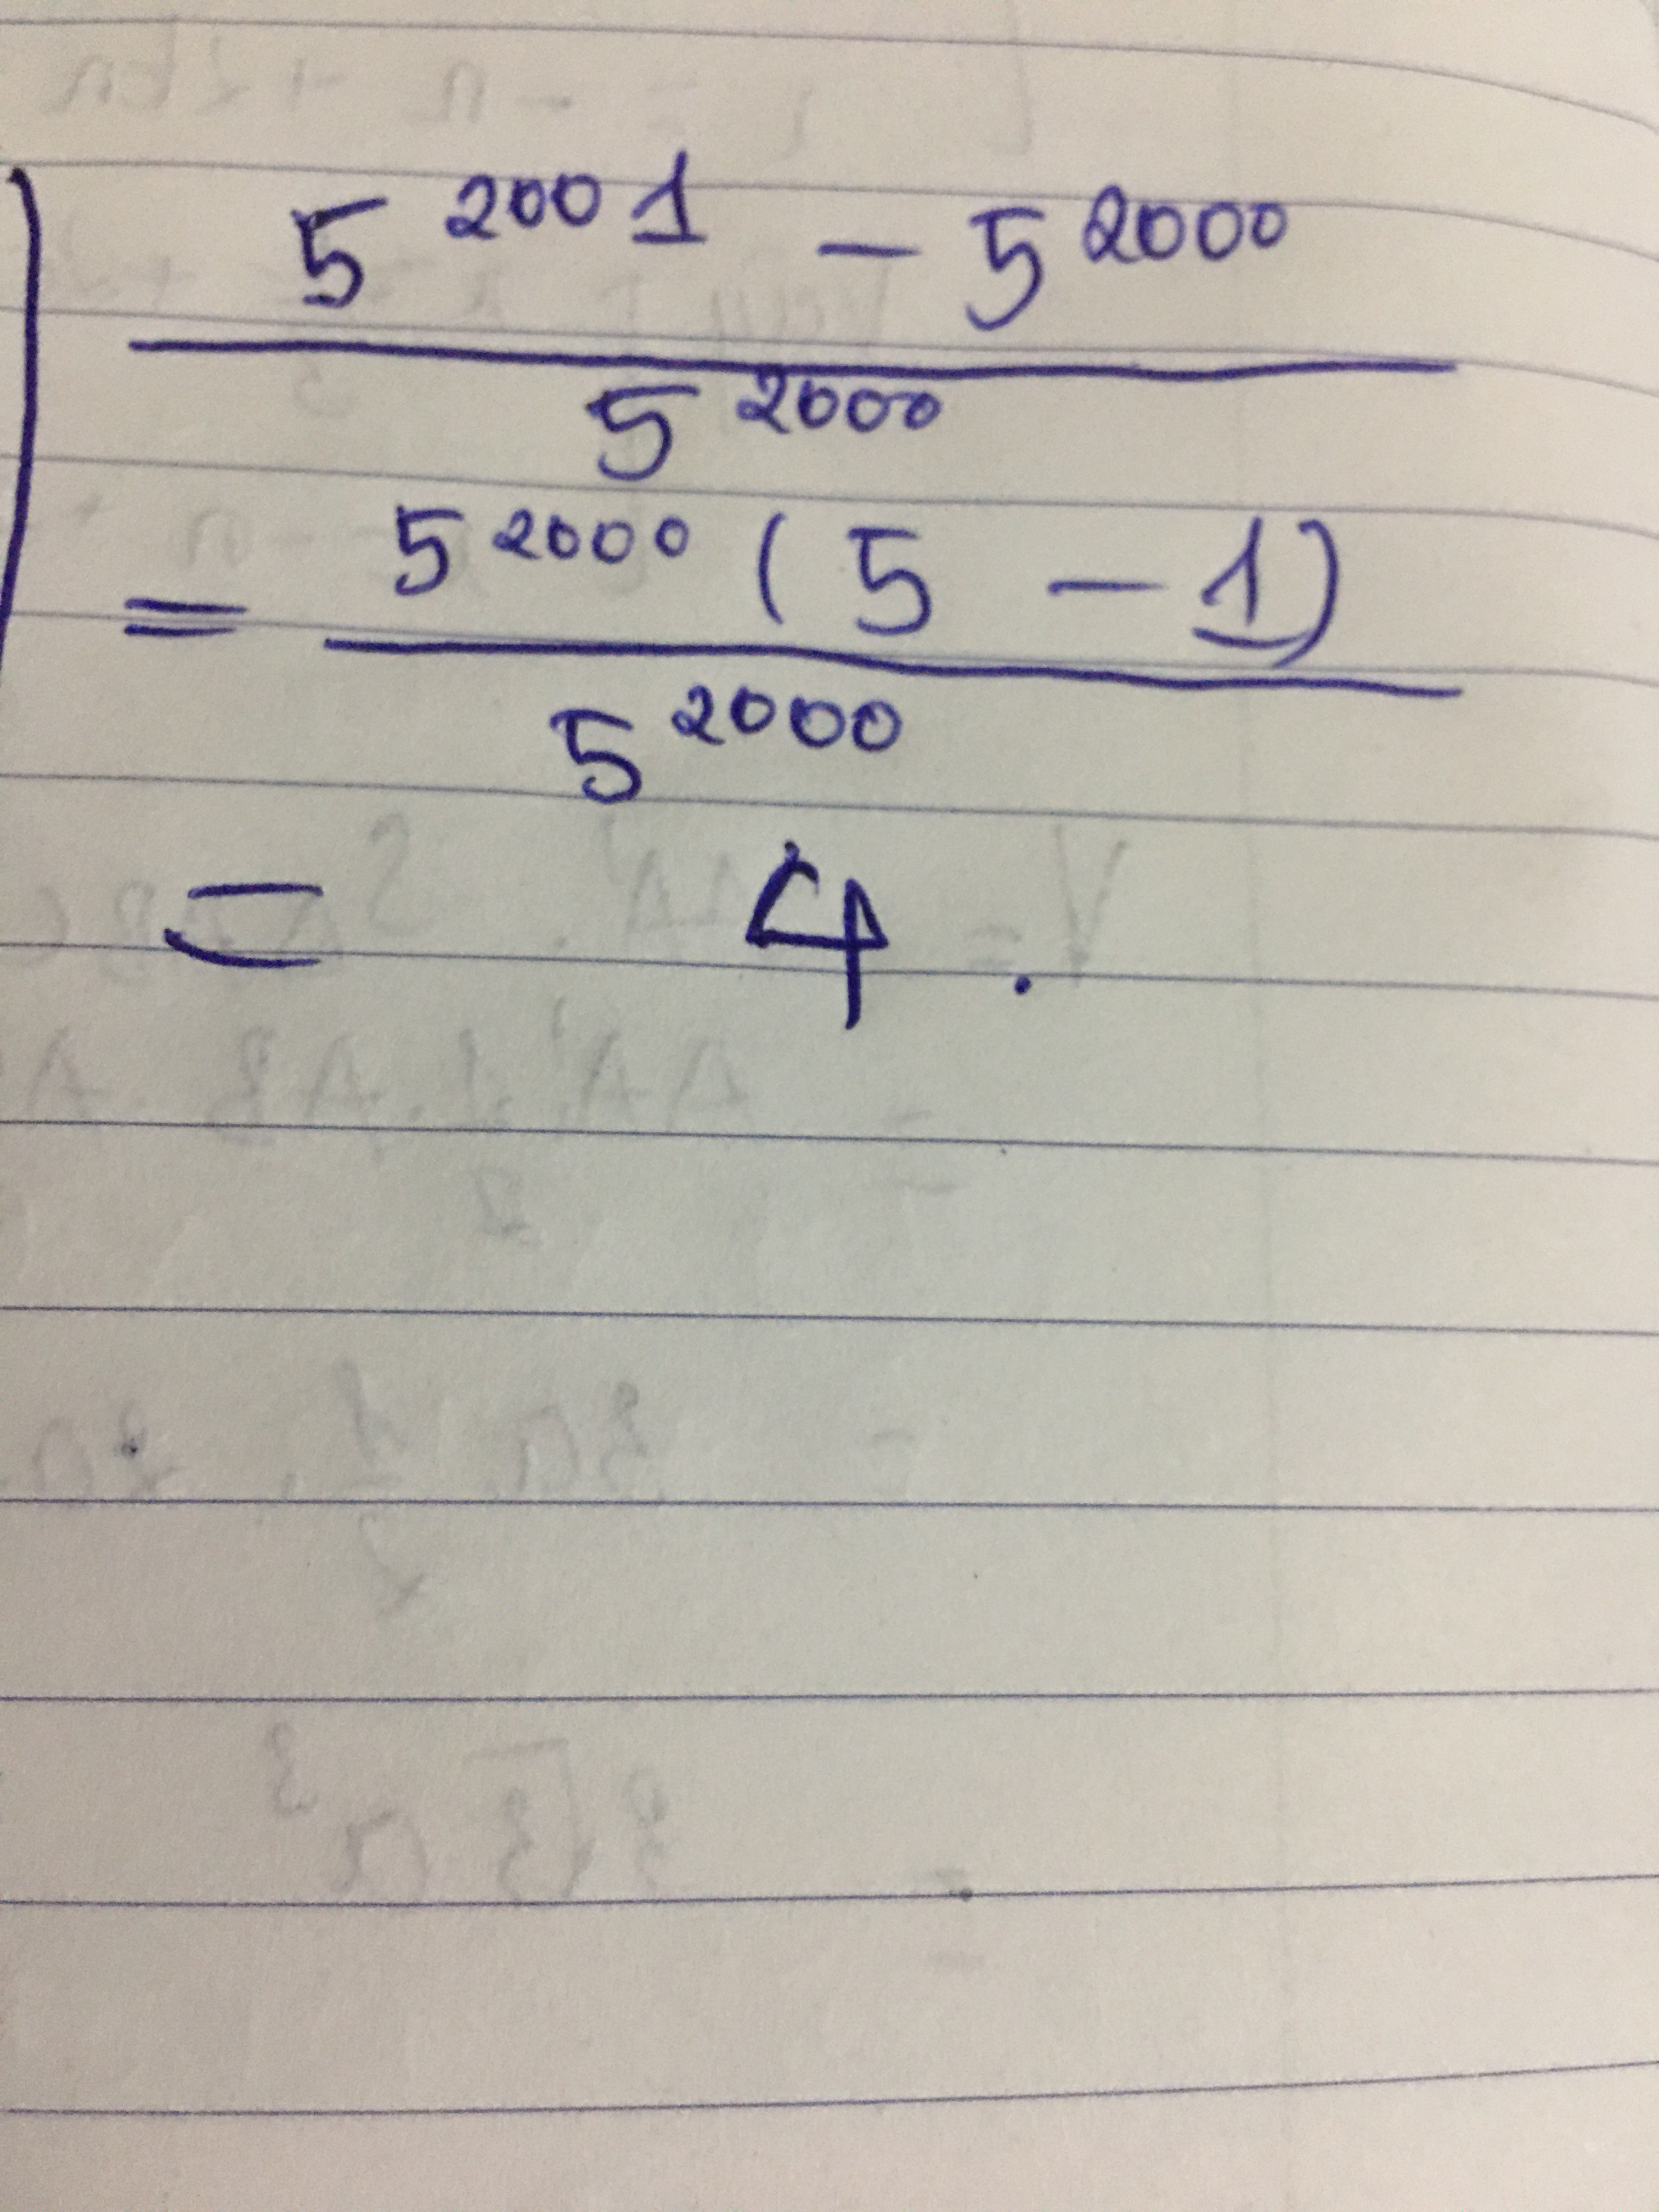 5^2001 - 5^2000
5^2000
= 5^2000 (5 - 1)
5^2000
= 4.